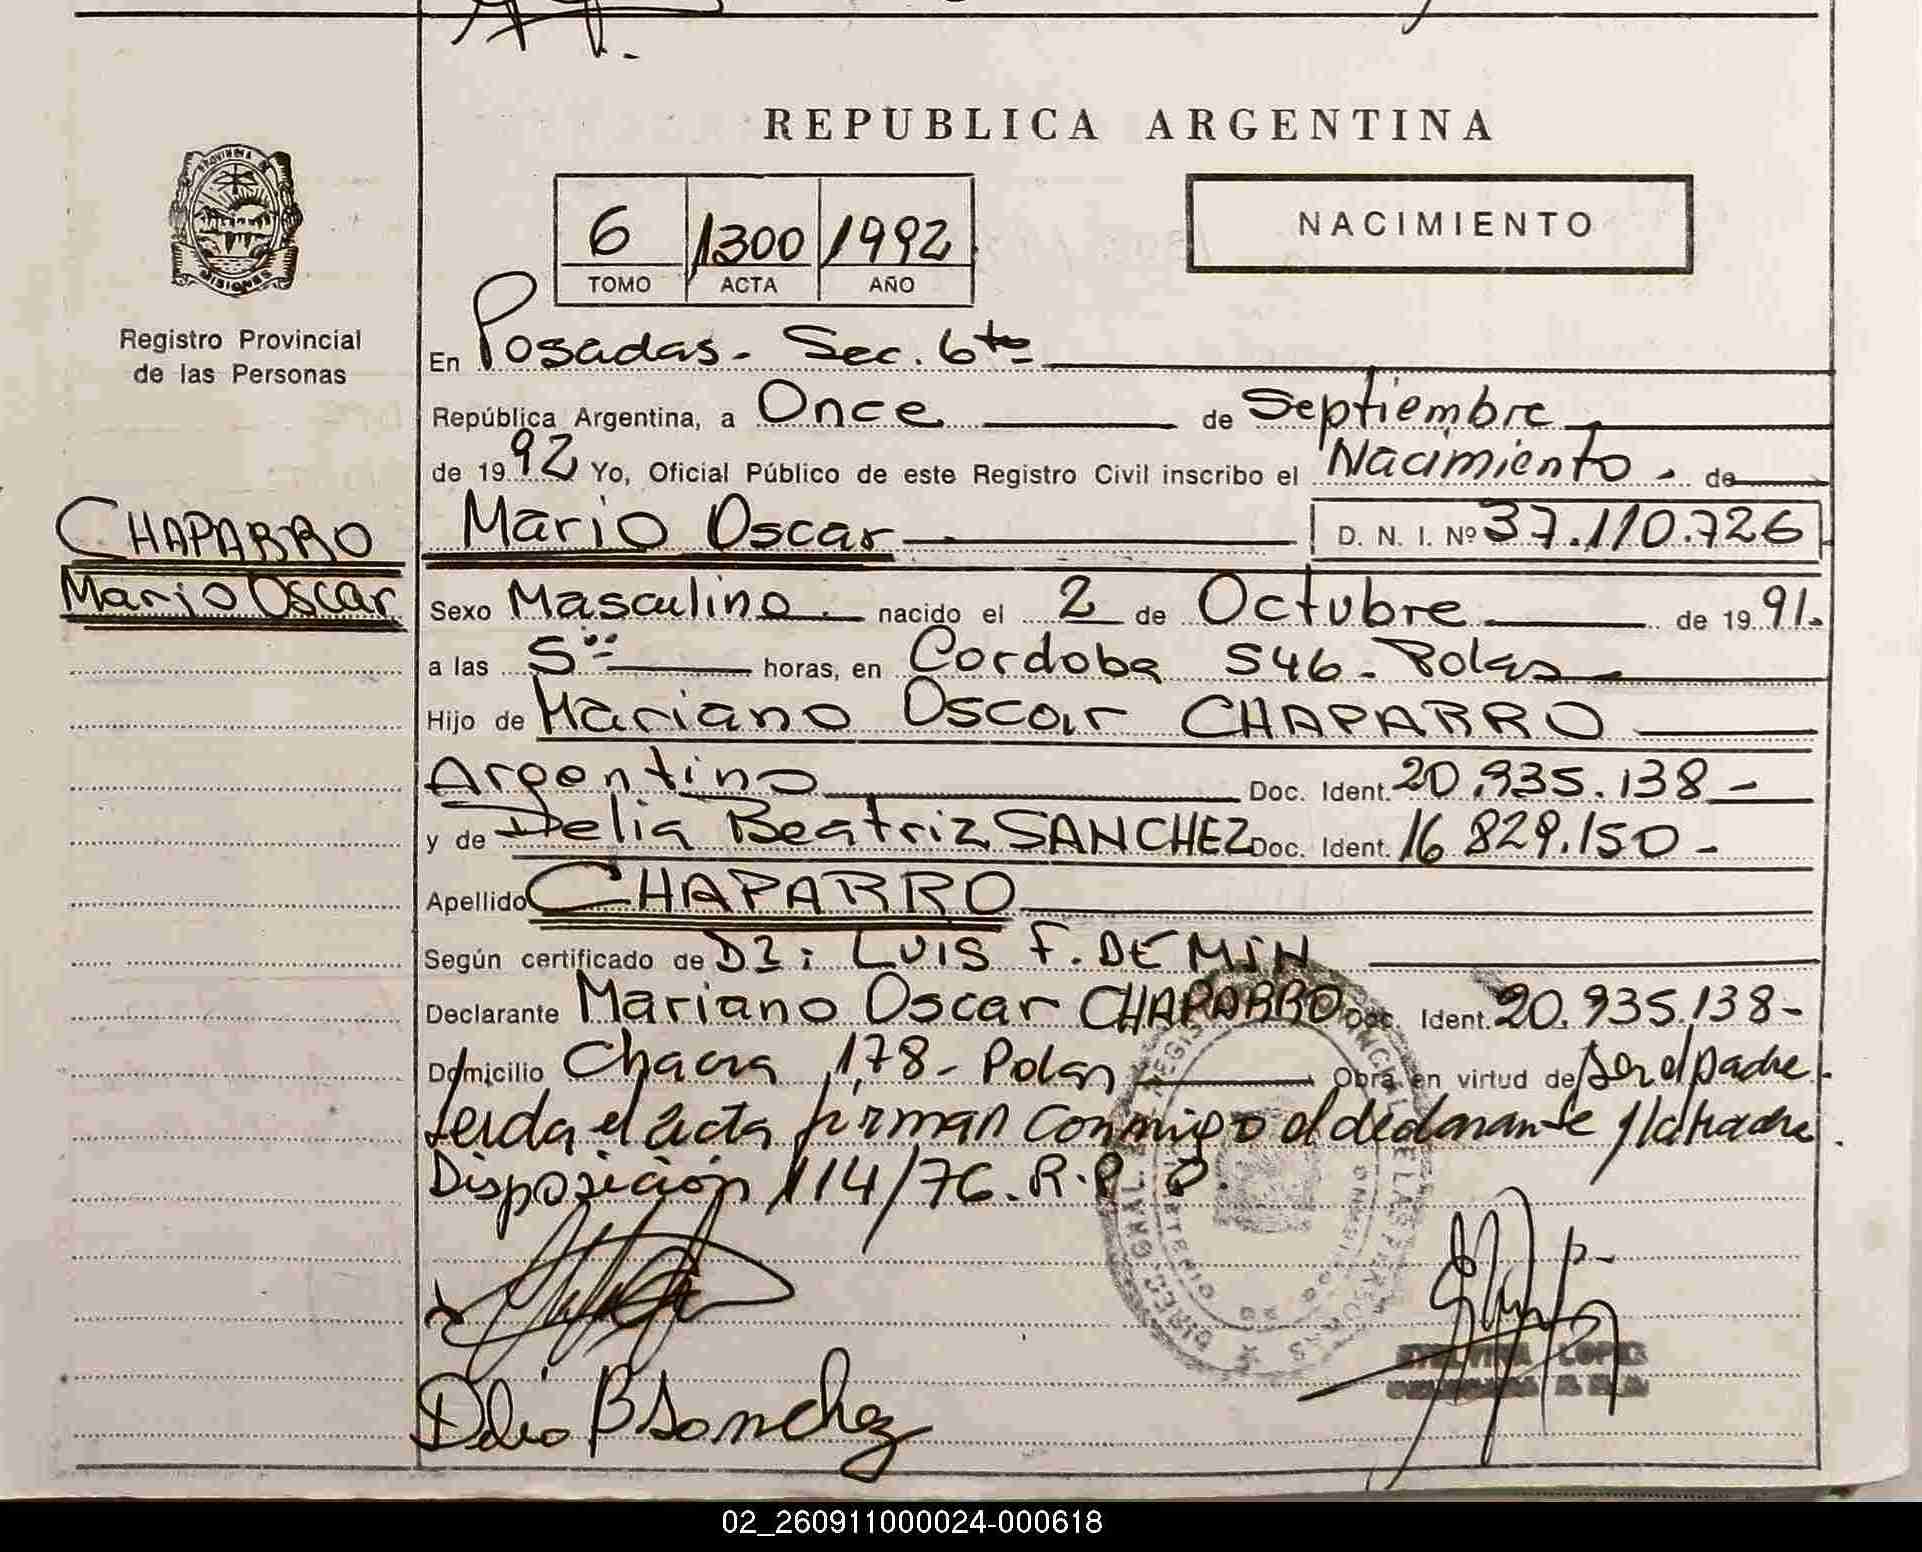 REPUBLICA ARGENTINA
PROVINCIA DE
MISIONES
6 1300 1992
TOMO ACTA AÑO
NACIMIENTO
Registro Provincial
de las Personas
En Posadas - Sec. 6ta
República Argentina, a Once de Septiembre
de 1992 Yo, Oficial Público de este Registro Civil inscribo el Nacimiento. de
CHAPARRO
Mario Oscar
Mario Oscar D. N. I. Nº 37.110.726
Sexo Masculino nacido el 2 de Octubre de 1991.
a las 5 horas, en Cordoba 546 - Pdas
Hijo de Mariano Oscar CHAPARRO
Argentino Doc. Ident. 20.935.138 -
y de Delia Beatriz SANCHEZ Doc. Ident. 16.829.150 -
Apellido CHAPARRO
Según certificado de D2: LUIS F. DEMIN
Declarante Mariano Oscar CHAPARRO Doc. Ident. 20.935.138 -
Domicilio Chacra 178 - Pdas Obra en virtud de ser el padre.
Leida el acta firman conmigo el declarante y la madre.
Disposición 114/76. R.P.
Delia B Sanchez
LOPEZ
02_260911000024-000618